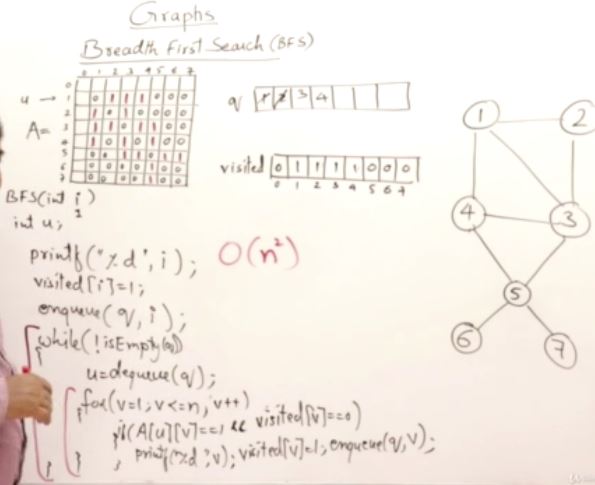 Graphs
Breadth First Search (BFS)
0 1 2 3 4 5 6 7
0
u → 1 0 1 1 1 0 0 0
A= 2 1 0 1 0 0 0 0
3 1 1 0 1 1 0 0
4 1 0 1 0 1 0 0
5 0 0 1 1 0 1 1
6 0 0 0 0 1 0 0
7 0 0 0 0 1 0 0
q 1 2 3 4
visited 0 1 1 1 1 0 0 0
0 1 2 3 4 5 6 7
1 2
4 3
5
6 7
BFS(int i)
1
int u;
printf("%d", i);
O(n²)
visited[i]=1;
enqueue(q, i);
while(!isEmpty(q))
{
u=dequeue(q);
for(v=1; v<=n; v++)
{
if(A[u][v]==1 && visited[v]==0)
{
printf("%d", v); visited[v]=1; enqueue(q, v);
} } }